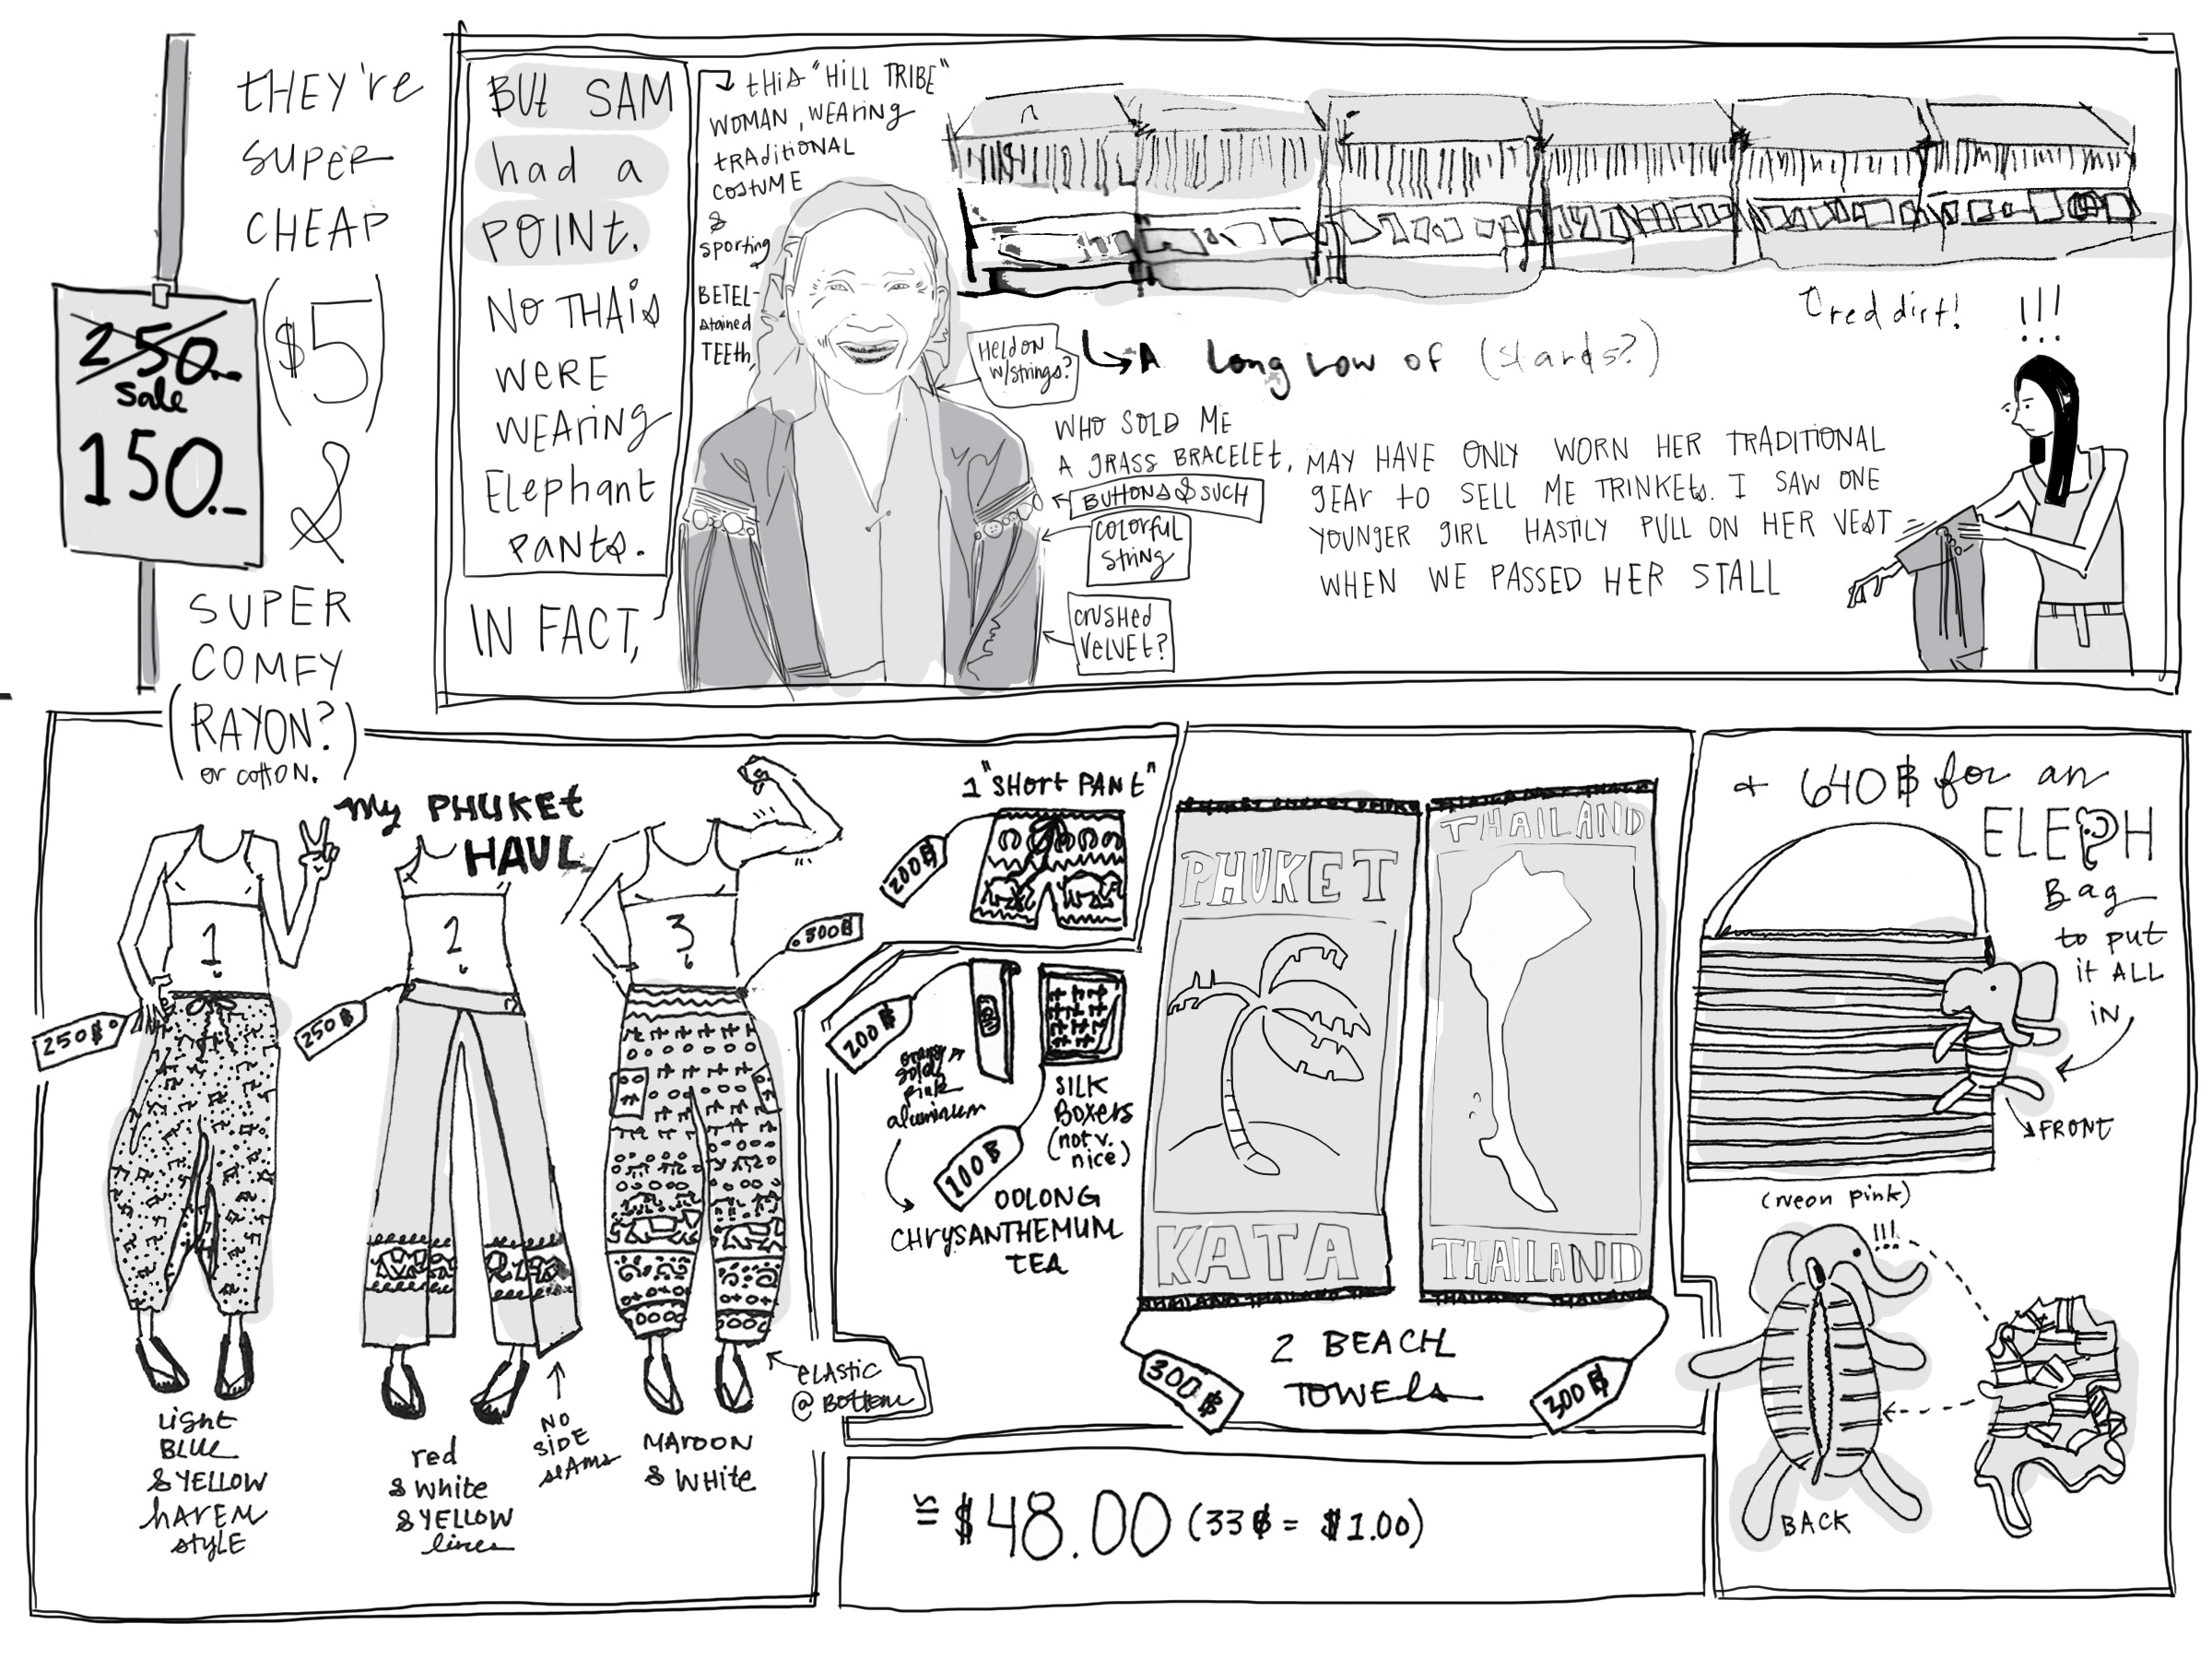 THEY'RE
SUPER
CHEAP
($5)
&
SUPER
COMFY
(RAYON?
or cotton.)
250.-
sale
150.-
BUT SAM
had a
POINT.
NO THAIS
WERE
WEARING
Elephant
PANTS.
IN FACT,
THIS "HILL TRIBE"
WOMAN, WEARING
TRADITIONAL
COSTUME
&
sporting
BETEL-
stained
TEETH,
Held on
w/strings?
A Long Low of (stands?)
red dirt!
!!!
WHO SOLD ME
A GRASS BRACELET,
BUTTONS & SUCH
COLORFUL
String
crushed
VELVET?
MAY HAVE ONLY WORN HER TRADITIONAL
GEAR TO SELL ME TRINKETS. I SAW ONE
YOUNGER GIRL HASTILY PULL ON HER VEST
WHEN WE PASSED HER STALL
My PHUKET
HAUL
1
2
3
250฿
250฿
300฿
Light
BLUE
& YELLOW
HAREM
style
red
& white
& YELLOW
lines
NO
SIDE
seams
MAROON
& WHITE
ELASTIC
@ BOTTOM
1 "SHORT PANT"
200฿
200฿
orange
gold
pink
aluminum
SILK
BOXERS
(not v.
nice)
100฿
OOLONG
CHRYSANTHEMUM
TEA
PHUKET
KATA
THAILAND
THAILAND
2 BEACH
TOWELS
300฿
300฿
≅ $48.00 (33฿ = $1.00)
+ 640฿ for an
ELEPH
Bag
to put
it ALL
IN
FRONT
(neon pink)
!!!
BACK